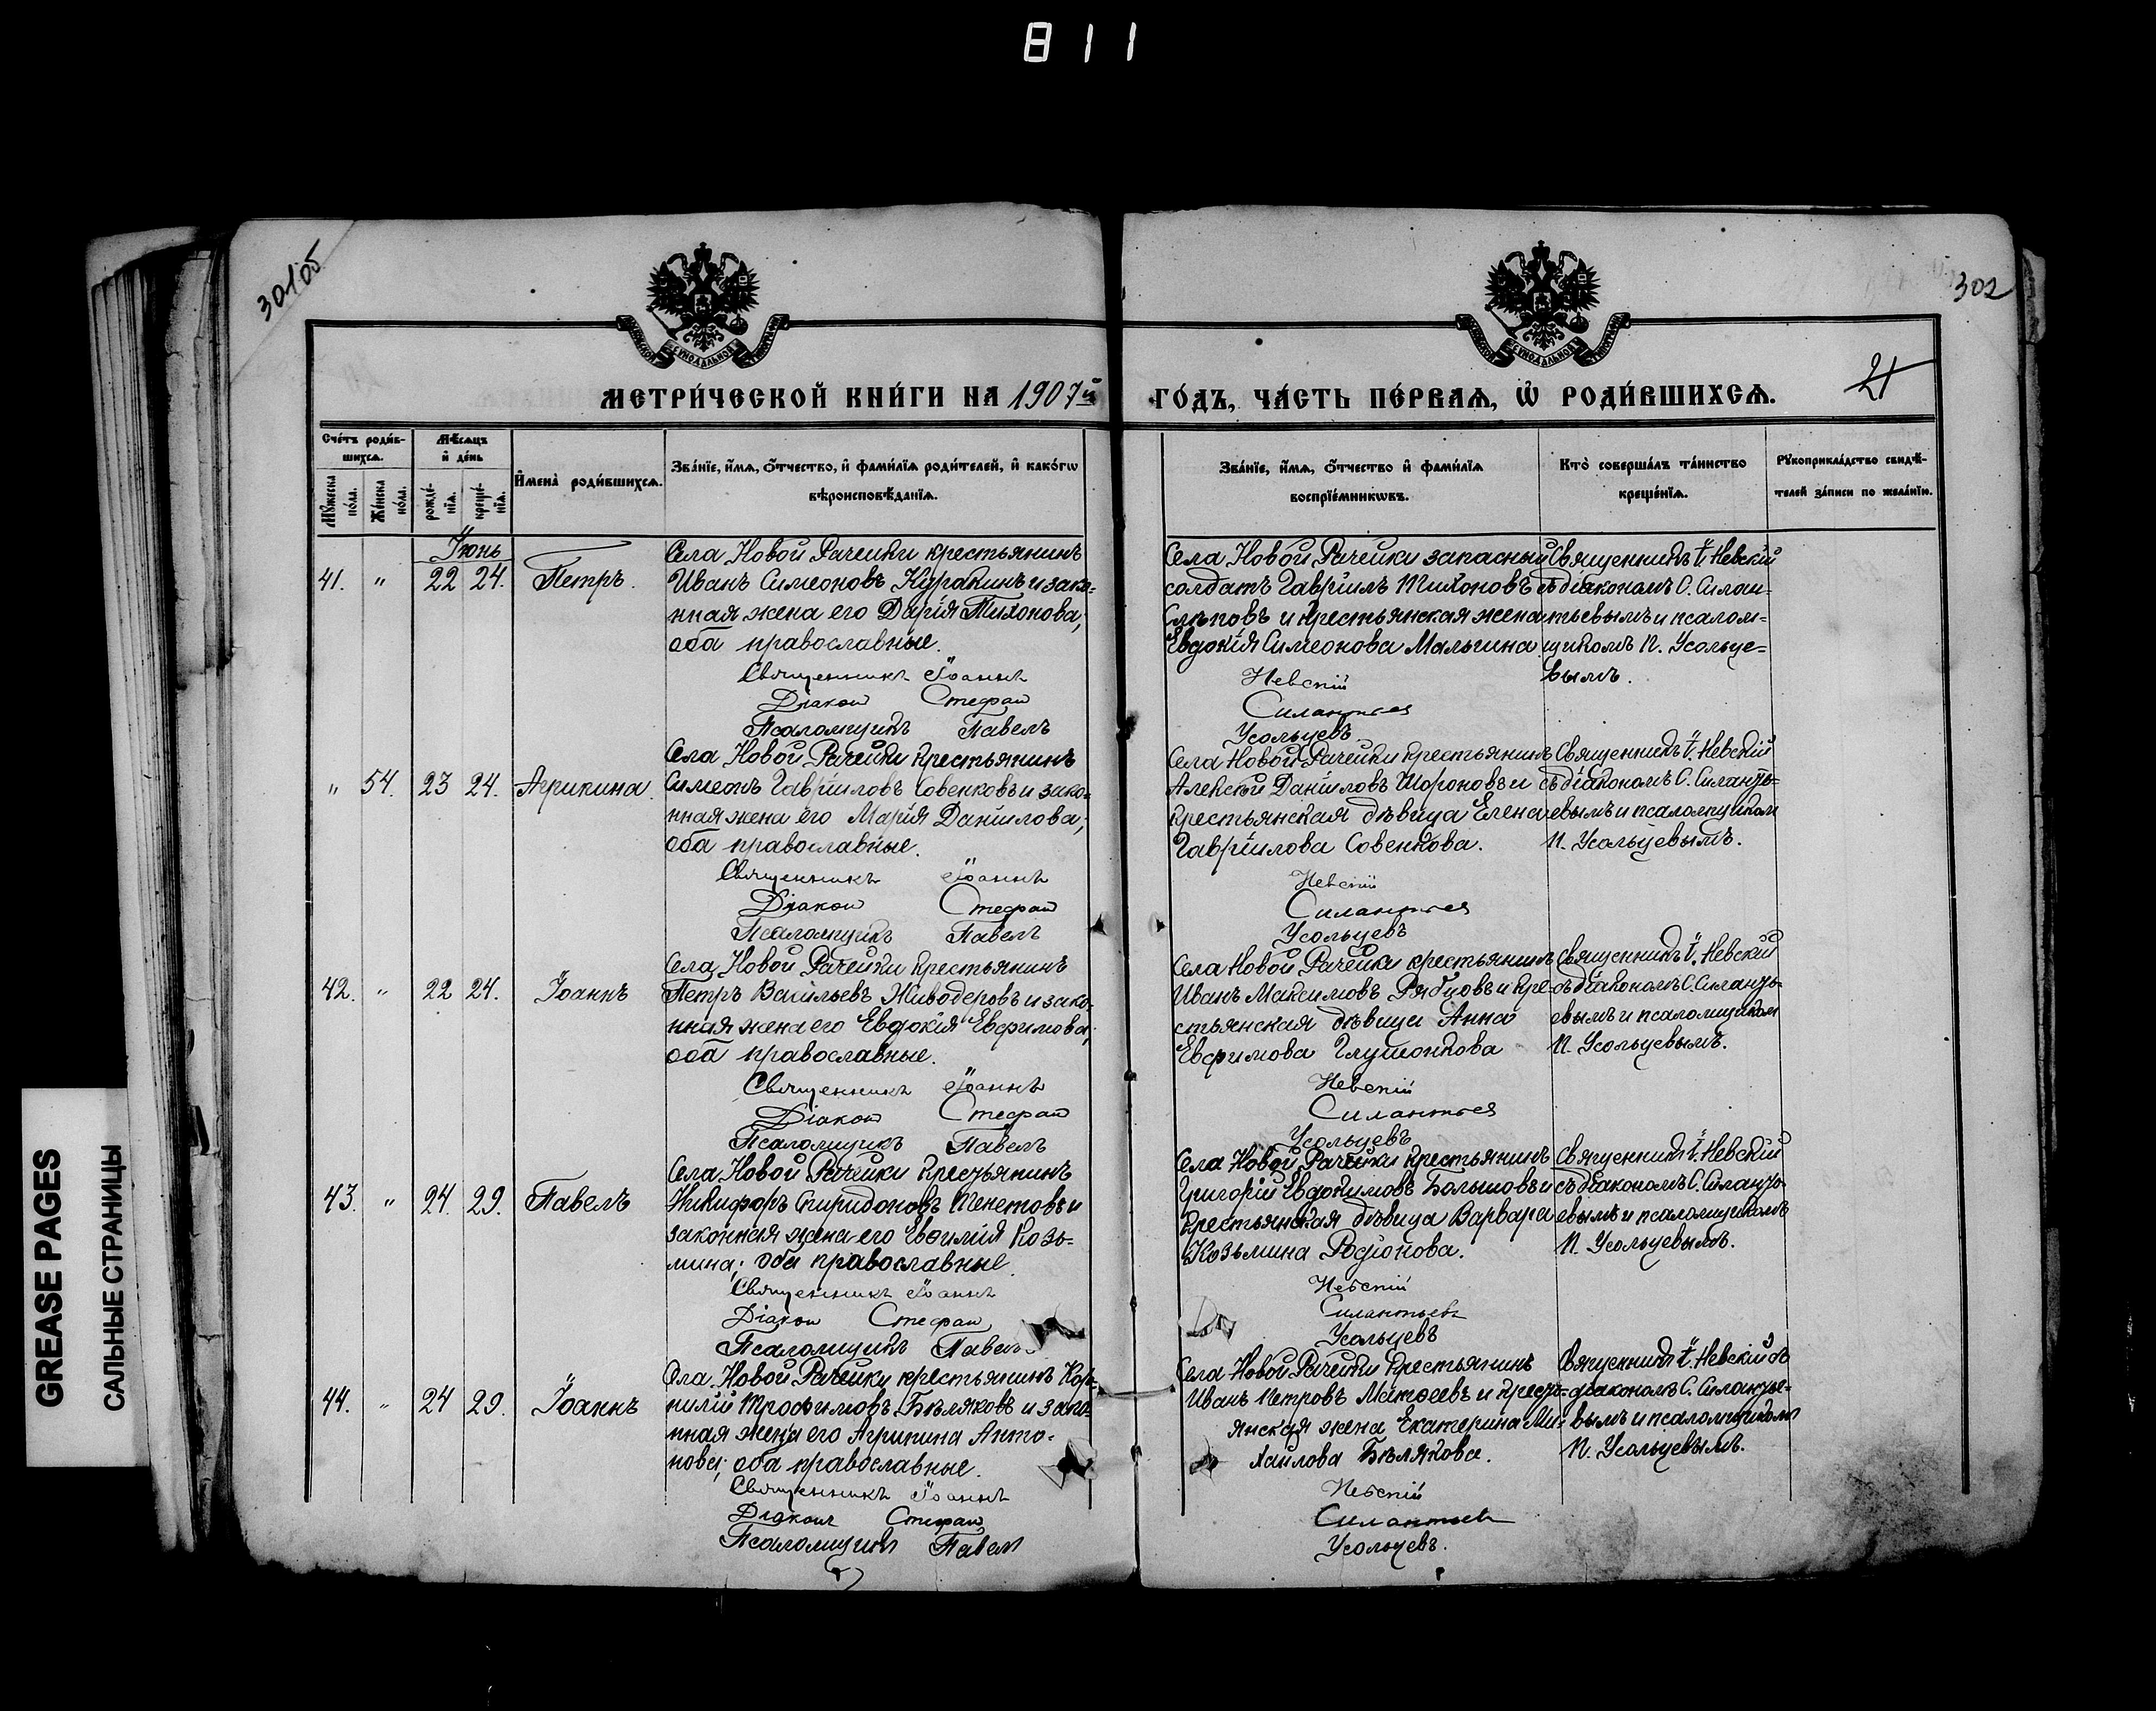 811
301об
302
21
МЕТРИ́ЧЕСКОЙ КНИ́ГИ НА 1907й ГО́ДЪ, ЧА́СТЬ ПЕ́РВАѦ, Ѡ҆ РОДИ́ВШИХСѦ.
Сче́тъ роди́в-
шихсѧ.
Мѣ́сѧцъ
и҆ де́нь
Мꙋ́жеска
по́ла.
Же́нска
по́ла.
рожде́-
нїѧ.
креще́-
нїѧ.
И҆мена̀ роди́вшихсѧ.
Зва́нїе, и҆́мѧ, ѻ҆́тчество, и҆ фами́лїѧ роди́телей, и҆ како́гѡ
вѣроисповѣ́данїѧ.
Зва́нїе, и҆́мѧ, ѻ҆́тчество и҆ фами́лїѧ
воспрїе́мникѡвъ.
Кто̀ соверша́лъ та́инство
креще́нїѧ.
Рꙋкоприкла́дство свидѣ́-
телей за́писи по жела́нїю.
Іюнь
41. " 22 24. Петръ.
Села Новой Рачейки крестьянинъ
Иванъ Симеоновъ Куракинъ и зако-
нная жена его Дарія Тихонова;
оба православные.
Священникъ Іоаннъ
Діакон Стефан
Псаломщикъ Павелъ
Села Новой Рачейки запасный
солдатъ Гавріилъ Тихоновъ
Слѣповъ и крестьянская жена
Евдокія Симеонова Малыгина
Невскій
Силантьев
Усольцевъ
Священникъ І. Невскій
съ діакономъ С. Силан-
тьевымъ и псалом-
щикомъ П. Усольце-
вымъ.
" 54. 23 24. Агрипина.
Села Новой Рачейки крестьянинъ
Симеонъ Гавріиловъ Совенковъ и зако-
нная жена его Марія Даніилова;
оба православные.
Священникъ Іоаннъ
Діакон Стефан
Псаломщикъ Павелъ
Села Новой Рачейки крестьянинъ
Алексѣй Даніиловъ Шороновъ и
крестьянская дѣвица Елена
Гавріилова Совенкова.
Невскій
Силантьев
Усольцевъ
Священникъ І. Невскій
съ діакономъ С. Силанть-
евымъ и псаломщиком
П. Усольцевымъ.
42. " 22 24. Іоаннъ
Села Новой Рачейки крестьянинъ
Петръ Васильевъ Живодеровъ и зако-
нная жена его Евдокія Евфимова;
оба православные.
Священникъ Іоаннъ
Діакон Стефан
Псаломщикъ Павелъ
Села Новой Рачейки крестьянинъ
Иванъ Максимовъ Рябцовъ и кре-
стьянская дѣвица Анна
Евфимова Глушонкова
Невскій
Силантьев
Усольцевъ
Священникъ І. Невскій
съ діакономъ С. Силанть-
евымъ и псаломщиком
П. Усольцевымъ.
43. " 24. 29. Павелъ
Села Новой Рачейки крестьянинъ
Никифоръ Спиридоновъ Пенетовъ и
законная жена его Евѳимія Козь-
мина; оба православные.
Священникъ Іоаннъ
Діакон Стефан
Псаломщикъ Павелъ
Села Новой Рачейки крестьянинъ
Григорій Евдокимовъ Болышовъ и
крестьянская дѣвица Варвара
Козьмина Родіонова.
Невскій
Силантьевъ
Усольцевъ
Священникъ І. Невскій
съ діакономъ С. Силанть-
евымъ и псаломщикомъ
П. Усольцевымъ.
44. " 24 29. Іоаннъ
Села Новой Рачейки крестьянинъ Кор-
нилій Трофимовъ Бѣляковъ и зако-
нная жена его Агрипина Анто-
нова; оба православные.
Священникъ Іоаннъ
Діаконъ Стефан
Псаломщикъ Павел
Села Новой Рачейки крестьянинъ
Иванъ Петровъ Матѳеевъ и кресть-
янская жена Екатерина Ми-
хаилова Бѣлякова.
Невскій
Силантьев
Усольцевъ.
Священникъ І. Невскій съ
діакономъ С. Силантье-
вымъ и псаломщиком
П. Усольцевымъ.
GREASE PAGES
САЛЬНЫЕ СТРАНИЦЫ